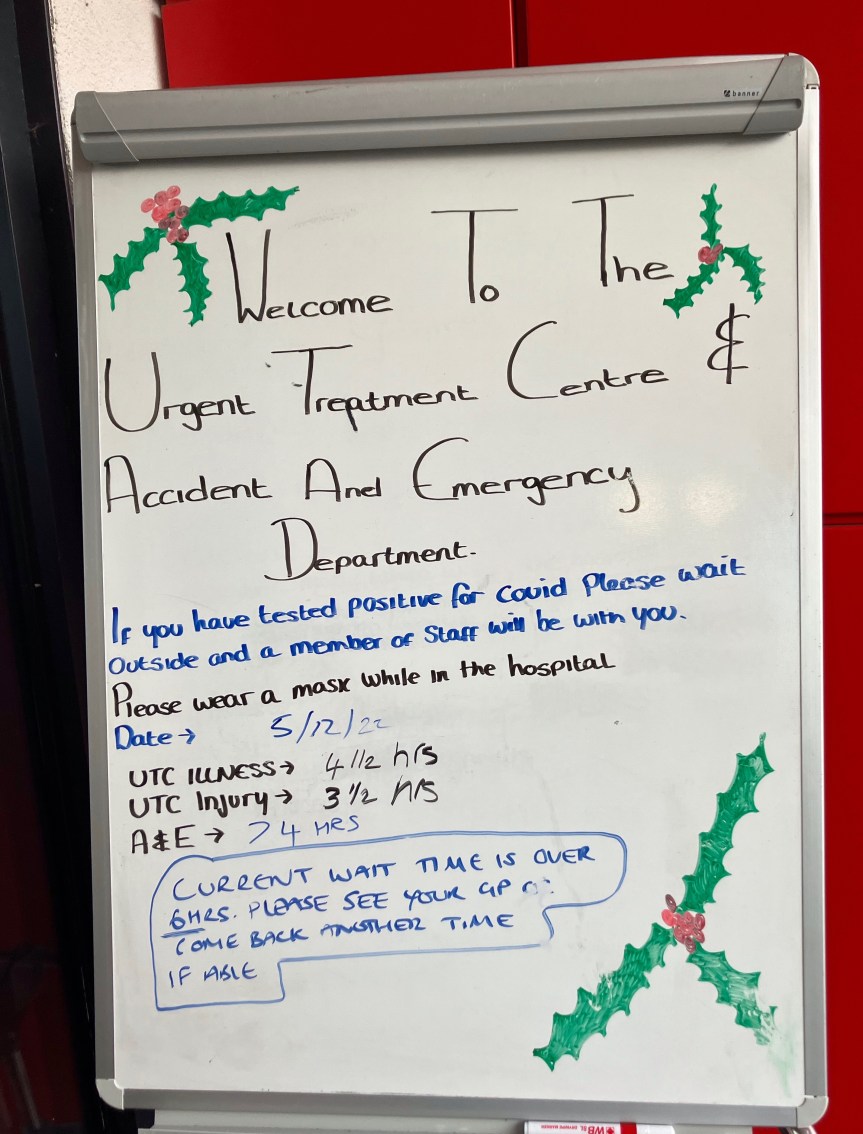 banner
Welcome To The
Urgent Treatment Centre &
Accident And Emergency
Department.
If you have tested positive for Covid Please wait
outside and a member of Staff will be with you.
Please wear a mask while in the hospital
Date → 5/12/22
UTC ILLNESS → 4 1/2 hrs
UTC Injury → 3 1/2 hrs
A&E → >4 HRS
CURRENT WAIT TIME IS OVER
6HRS. PLEASE SEE YOUR GP
COME BACK ANOTHER TIME
IF ABLE
WB